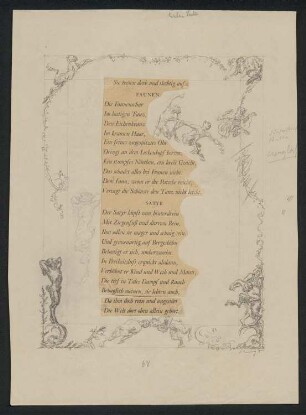 Sie treten derb und tüchtig auf.
FAUNEN
Die Faunenschar
Im lustigen Tanz,
Den Eichenkranz
Im krausen Haar,
Ein feines zugespitztes Ohr
Dringt an dem Lockenkopf hervor,
Ein stumpfes Näschen, ein breit Gesicht,
Das schadet alles bei Frauen nicht:
Dem Faun, wenn er die Patsche reicht,
Versagt die Schönste den Tanz nicht leicht.
SATYR
Der Satyr hüpft nun hinterdrein
Mit Ziegenfuß und dürrem Bein,
Ihm sollen sie mager und sehnig sein,
Und gemsenartig auf Bergeshöhn
Belustigt er sich, umherzusehn.
In Freiheitsluft erquickt alsdann,
Verhöhnt er Kind und Weib und Mann,
Die tief in Tales Dampf und Rauch
Behaglich meinen, sie lebten auch,
Da ihm doch rein und ungestört
Die Welt dort oben allein gehört.